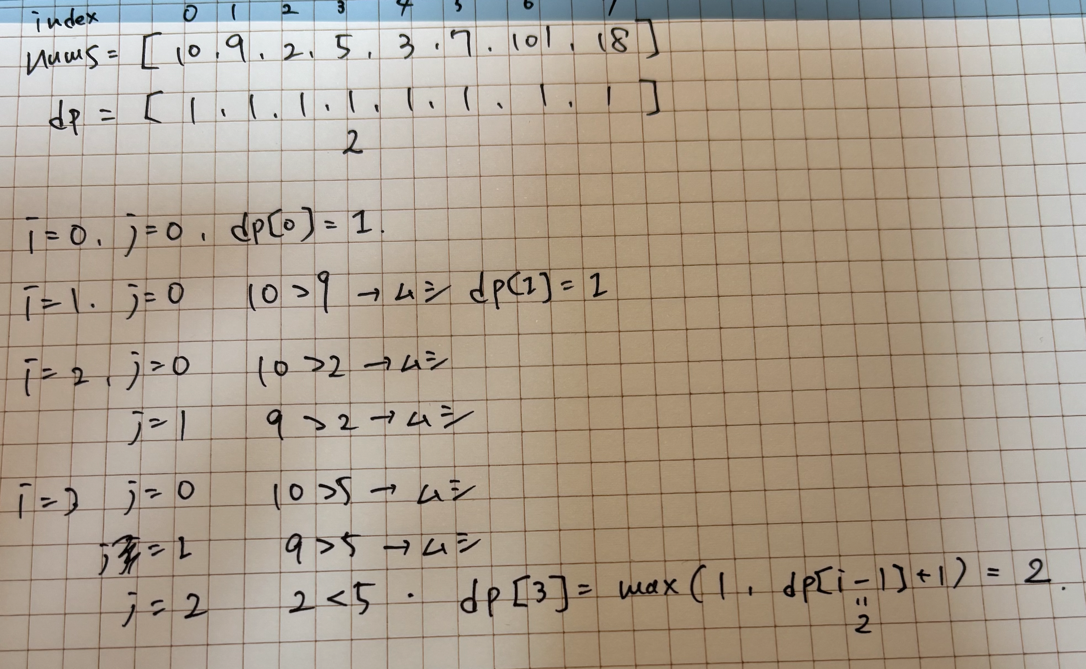 index 0 1 2 3 4 5 6 7
nums = [ 10, 9, 2, 5, 3, 7, 101, 18 ]
dp = [ 1, 1, 1, 1, 1, 1, 1, 1 ]
2
i=0, j=0, dp[0] = 1.
i=1. j=0 10>9 → dp[1] = 1
i=2, j=0 10>2 →
j=1 9>2 →
i=3 j=0 10>5 →
j=1 9>5 →
j=2 2<5. dp[3] = max(1, dp[i-1]+1) = 2.
"
2